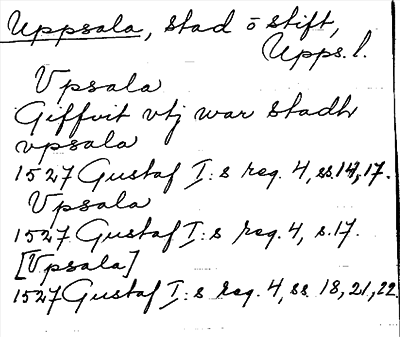 Uppsala, stad o stift,
Upps. l.
Vpsala
Giffvit vtj war stadh
vpsala
1527 Gustaf I:s reg. 4, ss. 14, 17.
Vpsala
1527 Gustaf I:s reg. 4, s. 17.
[Vpsala]
1527 Gustaf I:s reg. 4, ss 18, 21, 22.